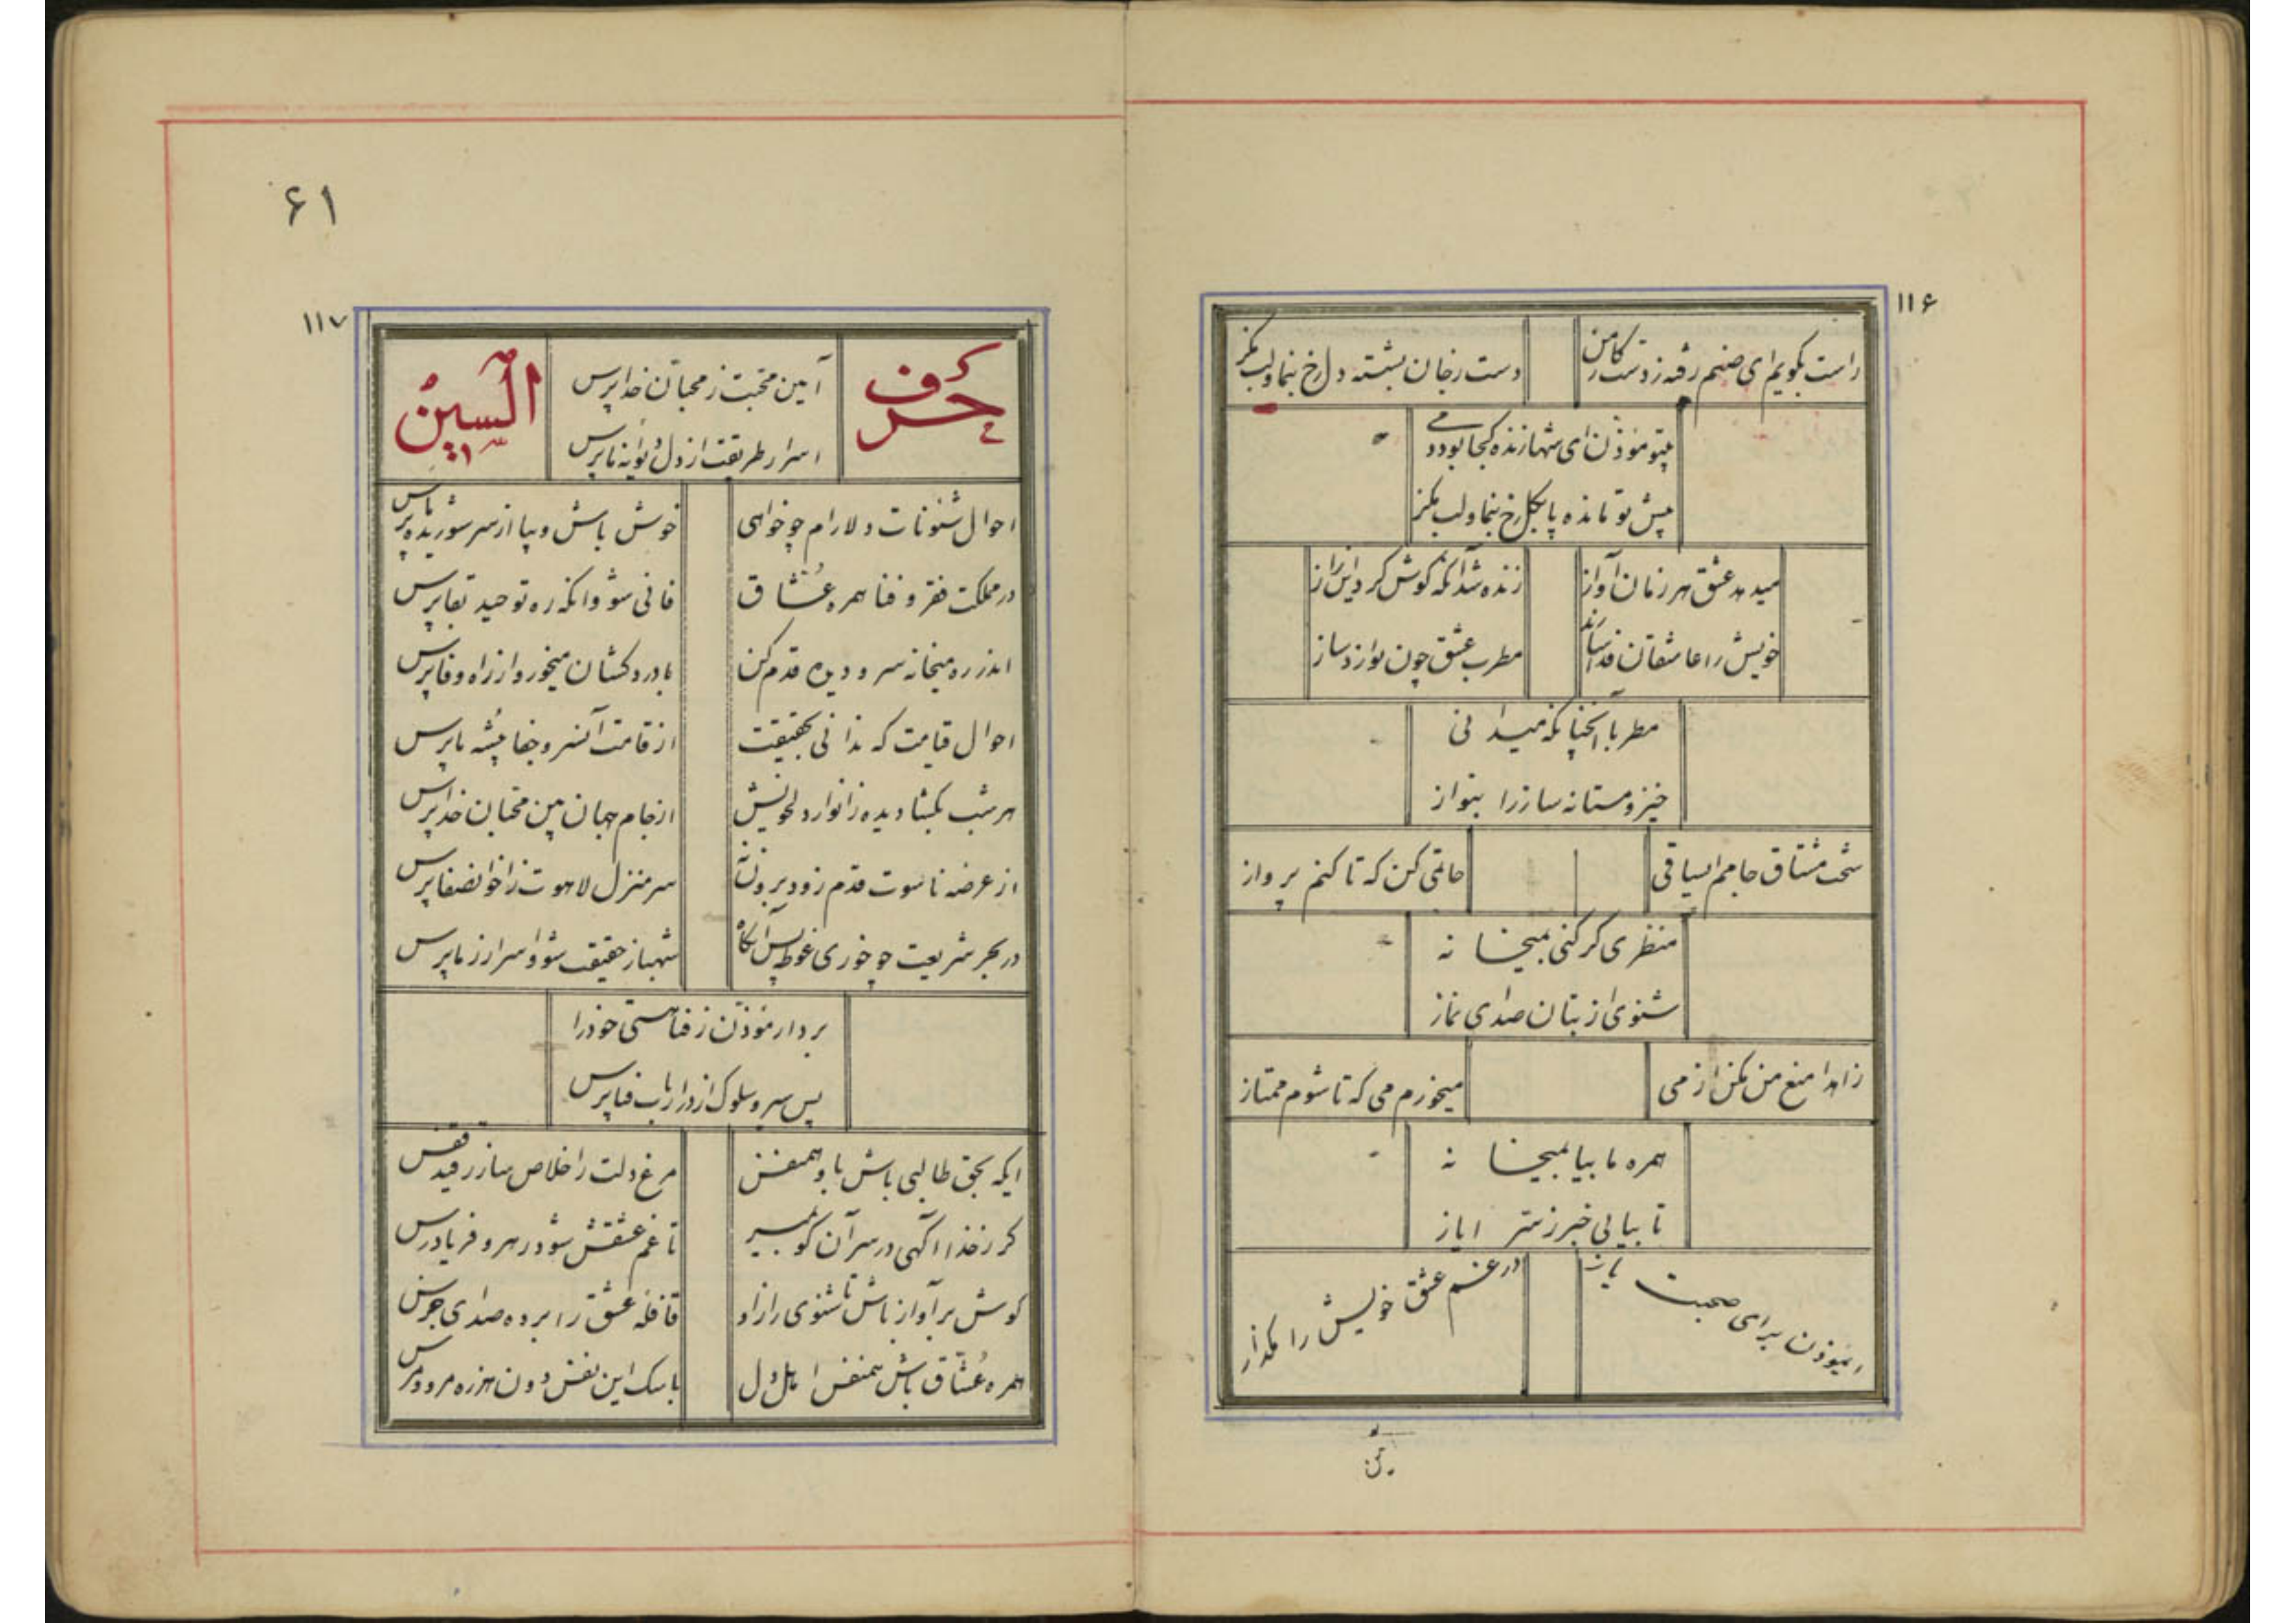 ۱۱۶
راست بگویم ای صنم رفته ز دست کار من
دست ز جان بشسته دل رخ بنما و لب مگز
بیتو مؤذن ای شها زنده کجا بود دمی
پیش تو مانده پا بگل رخ بنما و لب مگز
میدهد عشق هر زمان آواز
زنده شد آنکه گوش کرد این راز
خویش را عاشقان فدا سازند
مطرب عشق چون نوازد ساز
مطربا آنچنانکه میدانی
خیز و مستانه ساز را بنواز
سخت مشتاق جامم ایساقی
حالتی کن که تا کنم پرواز
منظری گر کنی بمیخانه
شنوی از بتان صدای نماز
زاهدا منع من مکن از می
میخورم می که تا شوم ممتاز
همره ما بیا بمیخانه
تا بیابی خبر ز سر ایاز
ایمؤذن برای صحبت یار
در غم عشق خویش را مگذار
۶۱
۱۱۷
حرف السین
آیین محبت ز محبان خدا پرس
اسرار طریقت از دل دیوانه ما پرس
احوال شئونات دلارام چو خواهی
خوش باش و بیا از سر شوریده ما پرس
در مملکت فقر و فنا همره عشاق
فانی شو وانگه ره توحید بقا پرس
اندر ره میخانه سر و دیده قدم کن
با دردکشان میخور و از راه وفا پرس
احوال قیامت که ندانی بحقیقت
از قامت آنسرو جفا پیشه ما پرس
هر شب بگشا دیده ز انوار دلخویش
از جام جهان بین محبان خدا پرس
از عرصه ناسوت قدم زود برون نه
سر منزل لاهوت ز اخوان صفا پرس
در بحر شریعت چو خوری غوطه پس آنگاه
شهباز حقیقت شو و اسرار ز ما پرس
بردار مؤذن ز فنا هستی خود را
پس سیر و سلوک از در ارباب فنا پرس
ایکه بحق طالبی باش باو همنفس
مرغ دلت را خلاص ساز ز قید قفس
گر ز خدا آگهی در سر آن کو بمیر
تا غم عشقش شود رهبر و فریادرس
گوش بر آواز باش تا شنوی راز او
قافله عشق را برده صدای جرس
همره عشاق باش همنفس اهل دل
با سگ این نفس دون هرزه مرو در مرس